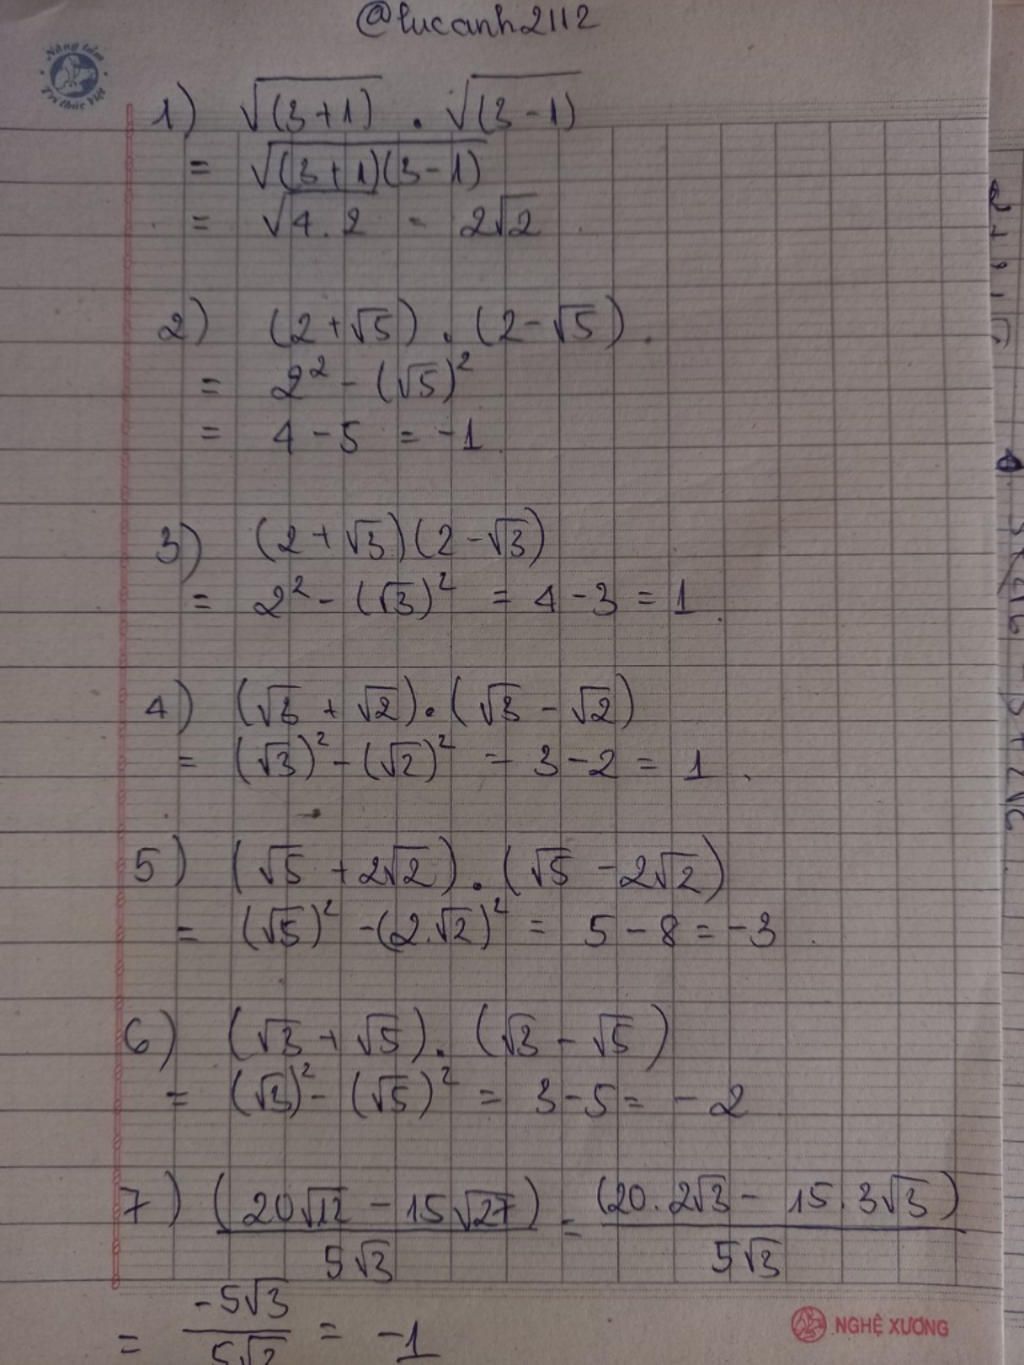 @lucanh2112
Nâng tầm
Tri thức Việt
1) √(3+1) . √(3-1)
= √(3+1)(3-1)
= √4.2 = 2√2
2) (2+√5) . (2-√5).
= 2² - (√5)²
= 4 - 5 = -1
3) (2+√3)(2-√3)
= 2² - (√3)² = 4 - 3 = 1
4) (√3 + √2).(√3 - √2)
= (√3)² - (√2)² = 3 - 2 = 1.
5) (√5 + 2√2).(√5 - 2√2)
= (√5)² - (2.√2)² = 5 - 8 = -3.
6) (√3 + √5).(√3 - √5)
= (√3)² - (√5)² = 3 - 5 = -2
7) (20√12 - 15√27) / 5√3 = (20.2√3 - 15.3√3) / 5√3
= -5√3 / 5√3 = -1
NGHỆ XƯƠNG